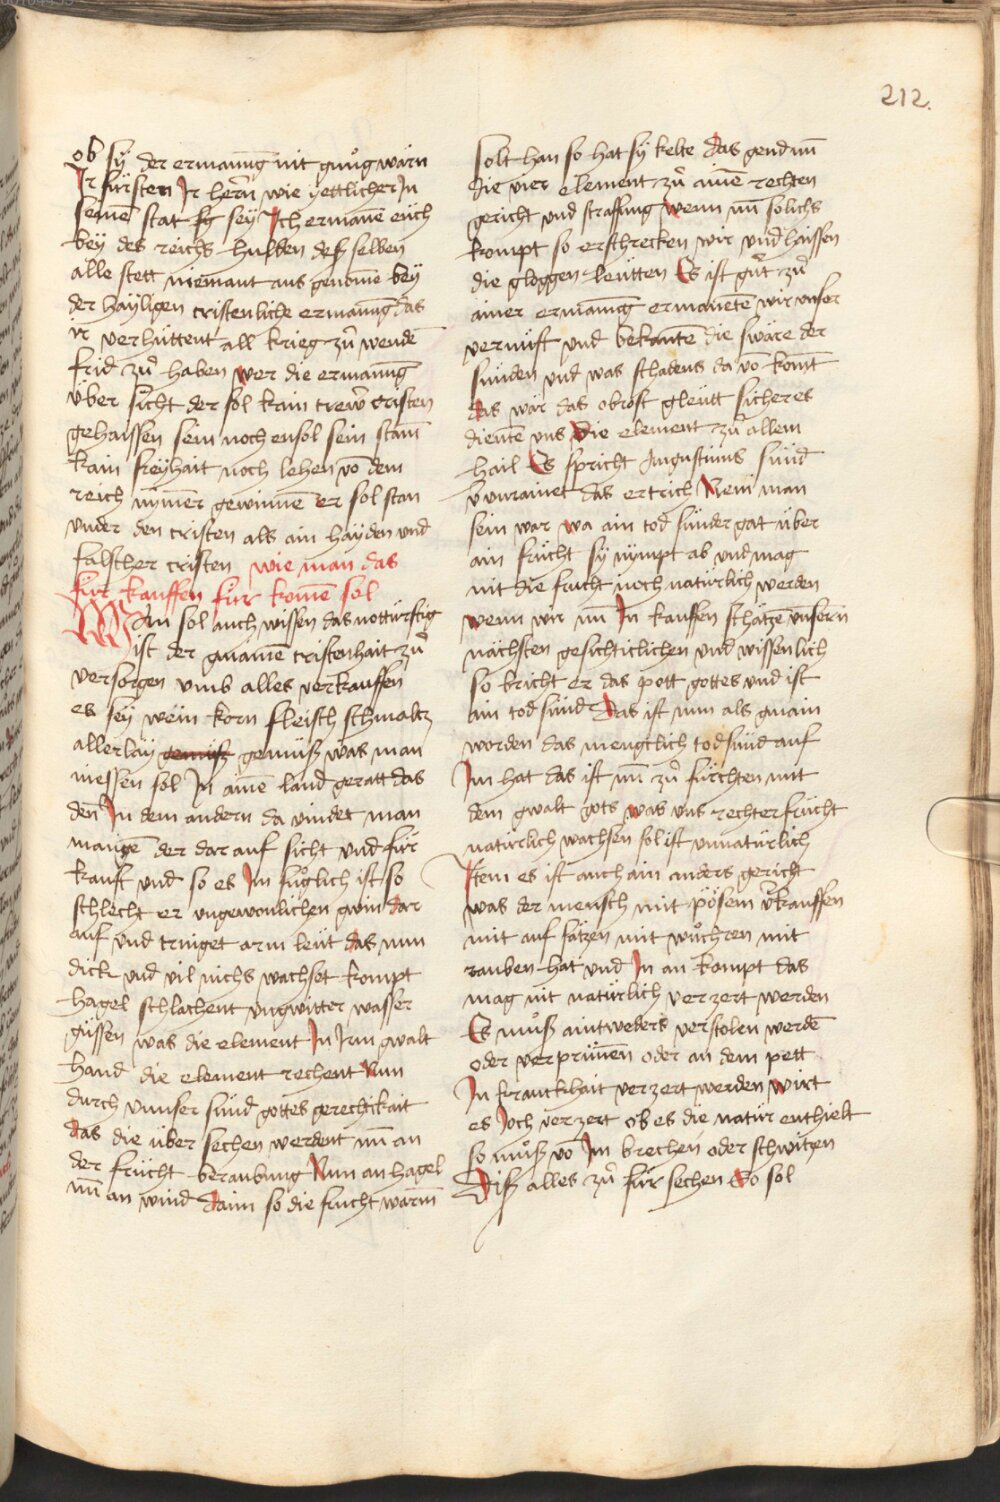 212.
ob sy der ermanung nit gnůg wärn
Ir fürsten Ir hern wie yettlicher In
seinē stat sey Ich ermanē eüch
bey des reichs hulden deß selben
alle stett niemant aus genomē bey
der hayligen cristenliche ermanung das
ir verhüttent all krieg zů wendē
frid zů haben wer die ermanung
über sicht der sol kain trew cristen
gehaissen sein noch ensol sein stam̄
kain freyhait noch lehen vō dem
reich nym̄er gewinnē er sol stan
vnder den cristen als ain hayden vnd
falscher cristen wie man das
für kauffen für komē sol
Man sol auch wissen das notturftig
ist der gmainē cristenhait zů
versorgen vmb alles verkauffen
es sey wein korn fleisch schmaltz
allerlay gemüß was man
niessen sol In ainē land geratt das
den In dem andern da vindet man
mangē der dar auf sicht vnd für
kauft vnd so es Im füglich ist so
schlecht er vngewonlichen gwin dar
auf vnd truiget arm leüt das nun
dick vnd vil nichs wachset kompt
hagel schlachent vngwitter wasser
güssen was die element In Irm gwalt
hand die element rechent Nun
durch vnnser sünd gottes gerechtikait
das die über sechen werdent nū an
der frücht beraubung Nun an hagel
nū an wind dann so die frucht warm̄
solt han so hat sy kelte das gend nū
die vier element zů ainē rechten
gericht vnd straffung wenn nū solichs
kompt so erschrecken wir vnd haissen
die gloggen leütten Es ist gůt zů
ainer ermanung ermanetē wir vnser
vernüft vnd bekantē die swäre der
sünden vnd was schadens da vō komt
das wär das obrost gleütt sicher es
dientē vns die element zů allem
hail Es spricht Augustinus sünd
vervnrainet das ertrich Nem man
sein war wa ain tod sünder gat über
ain frücht sy nympt ab vnd mag
nit die frucht noch natürlich werden
wenn wir nū In kauffen schätzē vnsern
nächsten gesichticlichen vnd wissenlich
so bricht er das pott gottes vnd ist
ain tod sünder das ist nun als gmain
worden das mengclich tod sünd auf
Im hat das ist nū zů fürchten mit
dem gwalt gots was vns rechter frücht
natürlich wachsen sol ist vnnatürlich
Item es ist auch ain anders gericht
was der mensch mit pösem vkauffen
mit auf sätzen mit wůchren mit
rauben hat vnd In an kompt das
mag nit natürlich verzert werden
Es můß aintweders verstolen werdē
oder verprunnen oder an dem pett
In kranckhait verzert werden wirt
es Joch verzert ob es die natür enthielt
so můß vō Im brechen oder schwitzen
Diß alles zů für sechen So sol